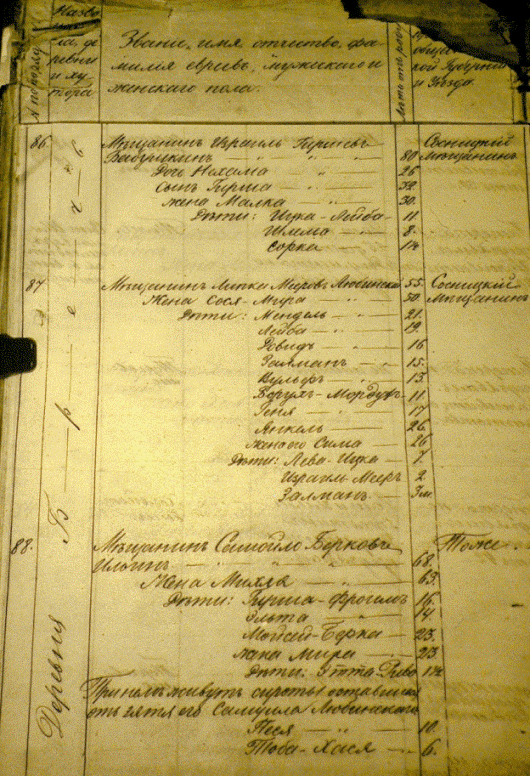 № по порядку
Назва
ла, де
ревни
и ху
тора
Званіе, имя отчество, фа
милія евреевъ, мужскаго и
женскаго пола.
Лѣта отъ роду
и Уѣзда.
86 Мѣщанинъ Израиль Гиршевъ Сосницкій
Бабушкинъ 80 Мѣщанинъ
Дочь Нехама 26
Сынъ Гирша 32
Жена Малка 30
Дѣти: Ицка-Лейба 11
Шлема 8
Сорка 1½
87 Мѣщанинъ Липка Мееровъ Любинскій 55 Сосницкій
Жена Сося-Мира 50 Мѣщанинъ
Дѣти: Мендель 21
Лейба 19
Довидъ 16
Залманъ 15
Вульфъ 13
Борухъ-Мордухъ 11
Геня 17
Янкель 26
Жена его Сима 26
Дѣти: Лева-Ицка 7
Израиль-Мееръ 2
Залманъ 3м.
88. Мѣщанинъ Самойло Берковъ Тоже
68
Жена Михля 63
Дѣти: Гирша-Фроимъ 16
Эльта 14
Мойсей-Берка 23
жена Мира 23
Дѣти: Этта-Риво 1½
При немъ живутъ сироты оставшіеся
отъ зятя его Самуила Любинскаго
Песя 10
Тоба-Хася 6.
Деревня